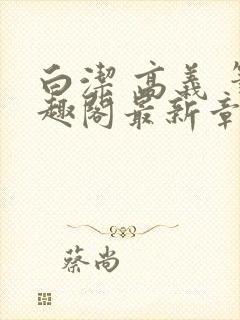 白潔 高義 笔
趣閣最新章
蔡尚